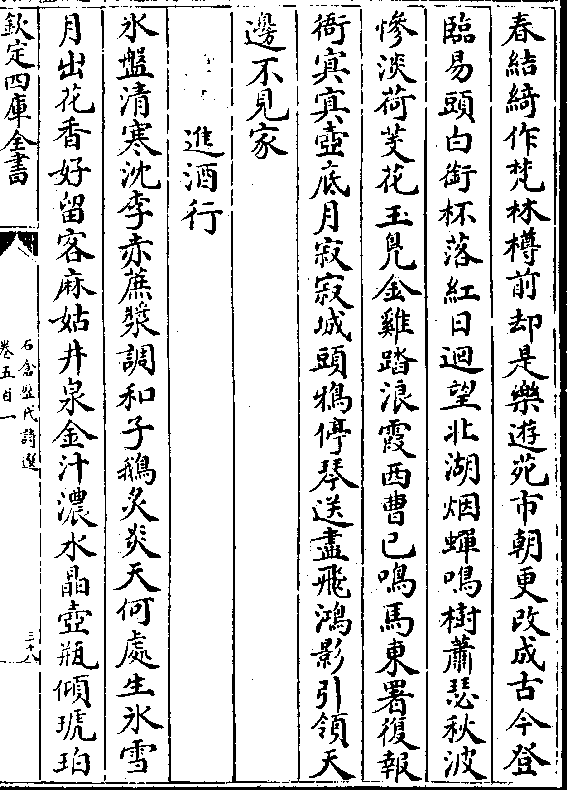 春結綺作梵林樽前却是樂遊苑市朝更改成古今登
臨易頭白銜杯落紅日迴望北湖烟蟬鳴樹蕭瑟秋波
慘淡荷芰花玉鳧金雞踏浪霞西曹已鳴馬東署復報
衙寞寞壺底月寂寂城頭鴉停琴送盡飛鴻影引領天
邊不見家
進酒行
氷盤清寒沈李赤蔗漿調和子鵝炙炎天何處生氷雪
月出花香好留客麻姑井泉金汁濃水晶壺瓶傾琥珀
欽定四庫全書
石倉歷代詩選
卷五百一
三十八